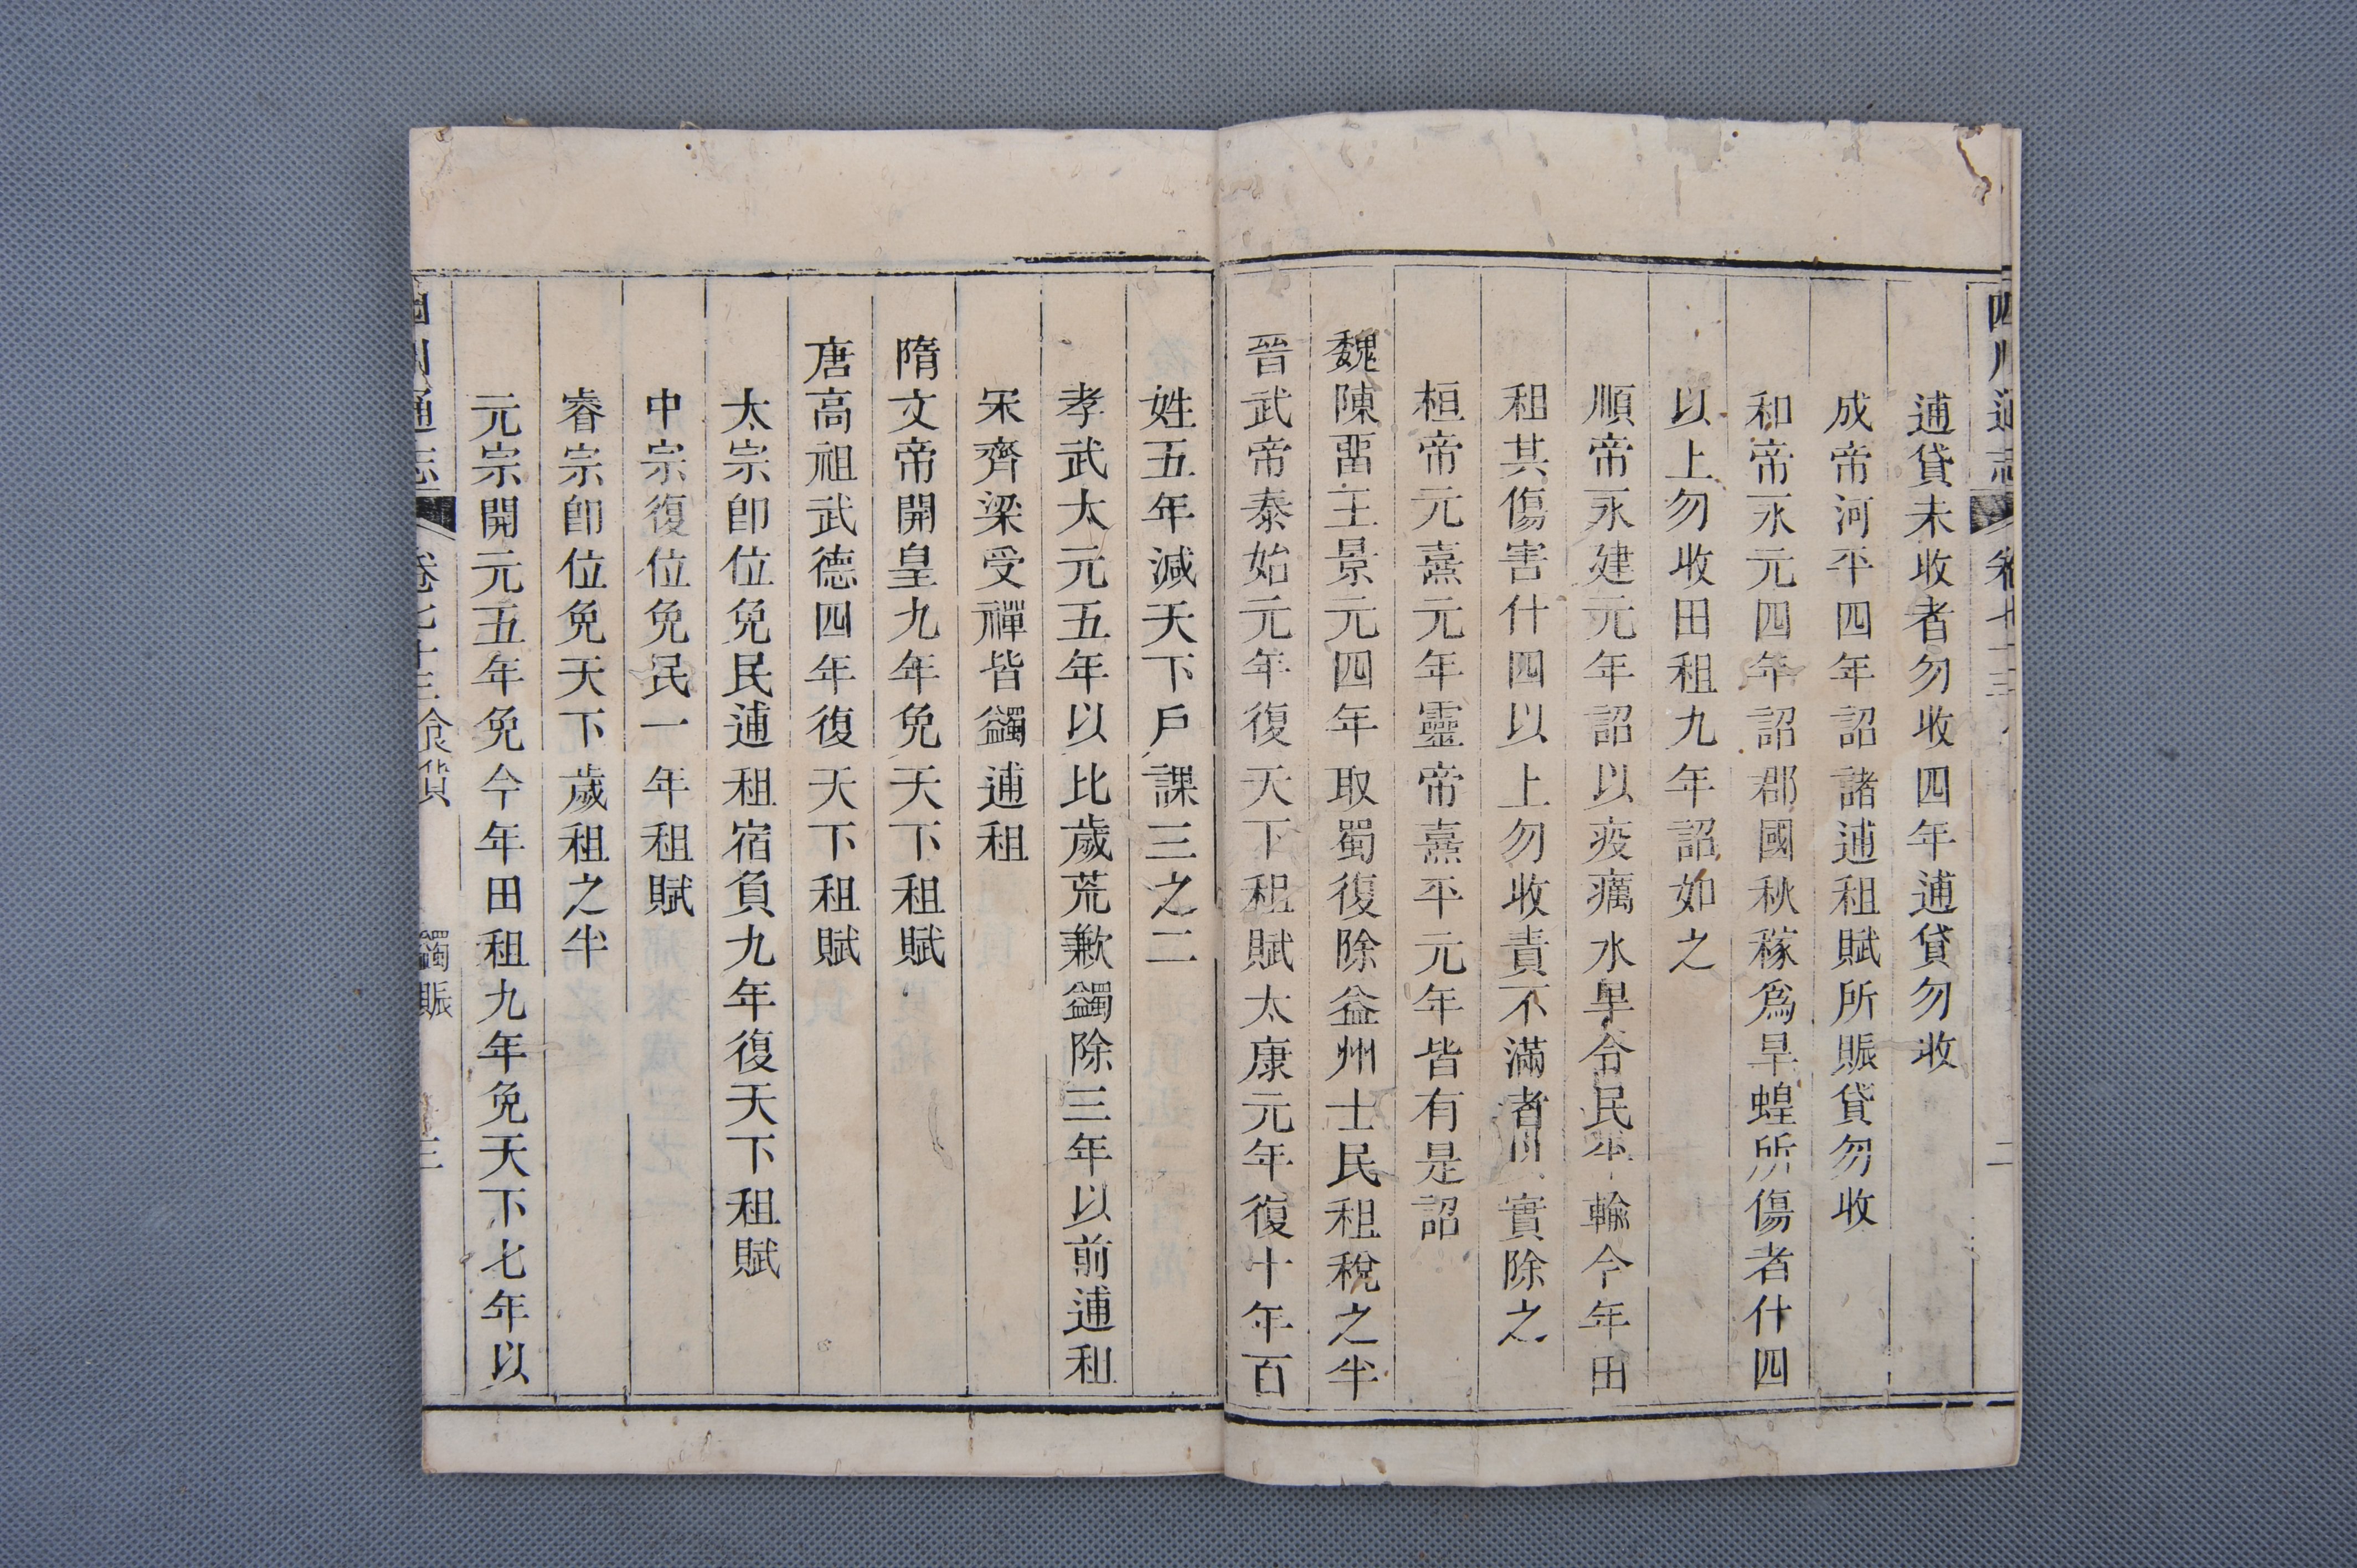 四川通志 卷七十三 二
逋貸未收者勿收四年逋貸勿收
成帝河平四年詔諸逋租賦所賑貸勿收
和帝永元四年詔郡國秋稼爲旱蝗所傷者什四
以上勿收田租九年詔如之
順帝永建元年詔以疫癘水旱令民半輸今年田
租其傷害什四以上勿收責不滿者以實除之
桓帝元熹元年靈帝熹平元年皆有是詔
魏陳畱王景元四年取蜀復除益州士民租稅之半
晉武帝泰始元年復天下租賦太康元年復十年百
姓五年減天下戶課三之二
孝武太元五年以比歲荒歉蠲除三年以前逋租
宋齊梁受禪皆蠲逋租
隋文帝開皇九年免天下租賦
唐高祖武德四年復天下租賦
太宗卽位免民逋租宿負九年復天下租賦
中宗復位免民一年租賦
睿宗卽位免天下歲租之半
元宗開元五年免今年田租九年免天下七年以
四川通志 卷七十三 食貨 蠲賑 三